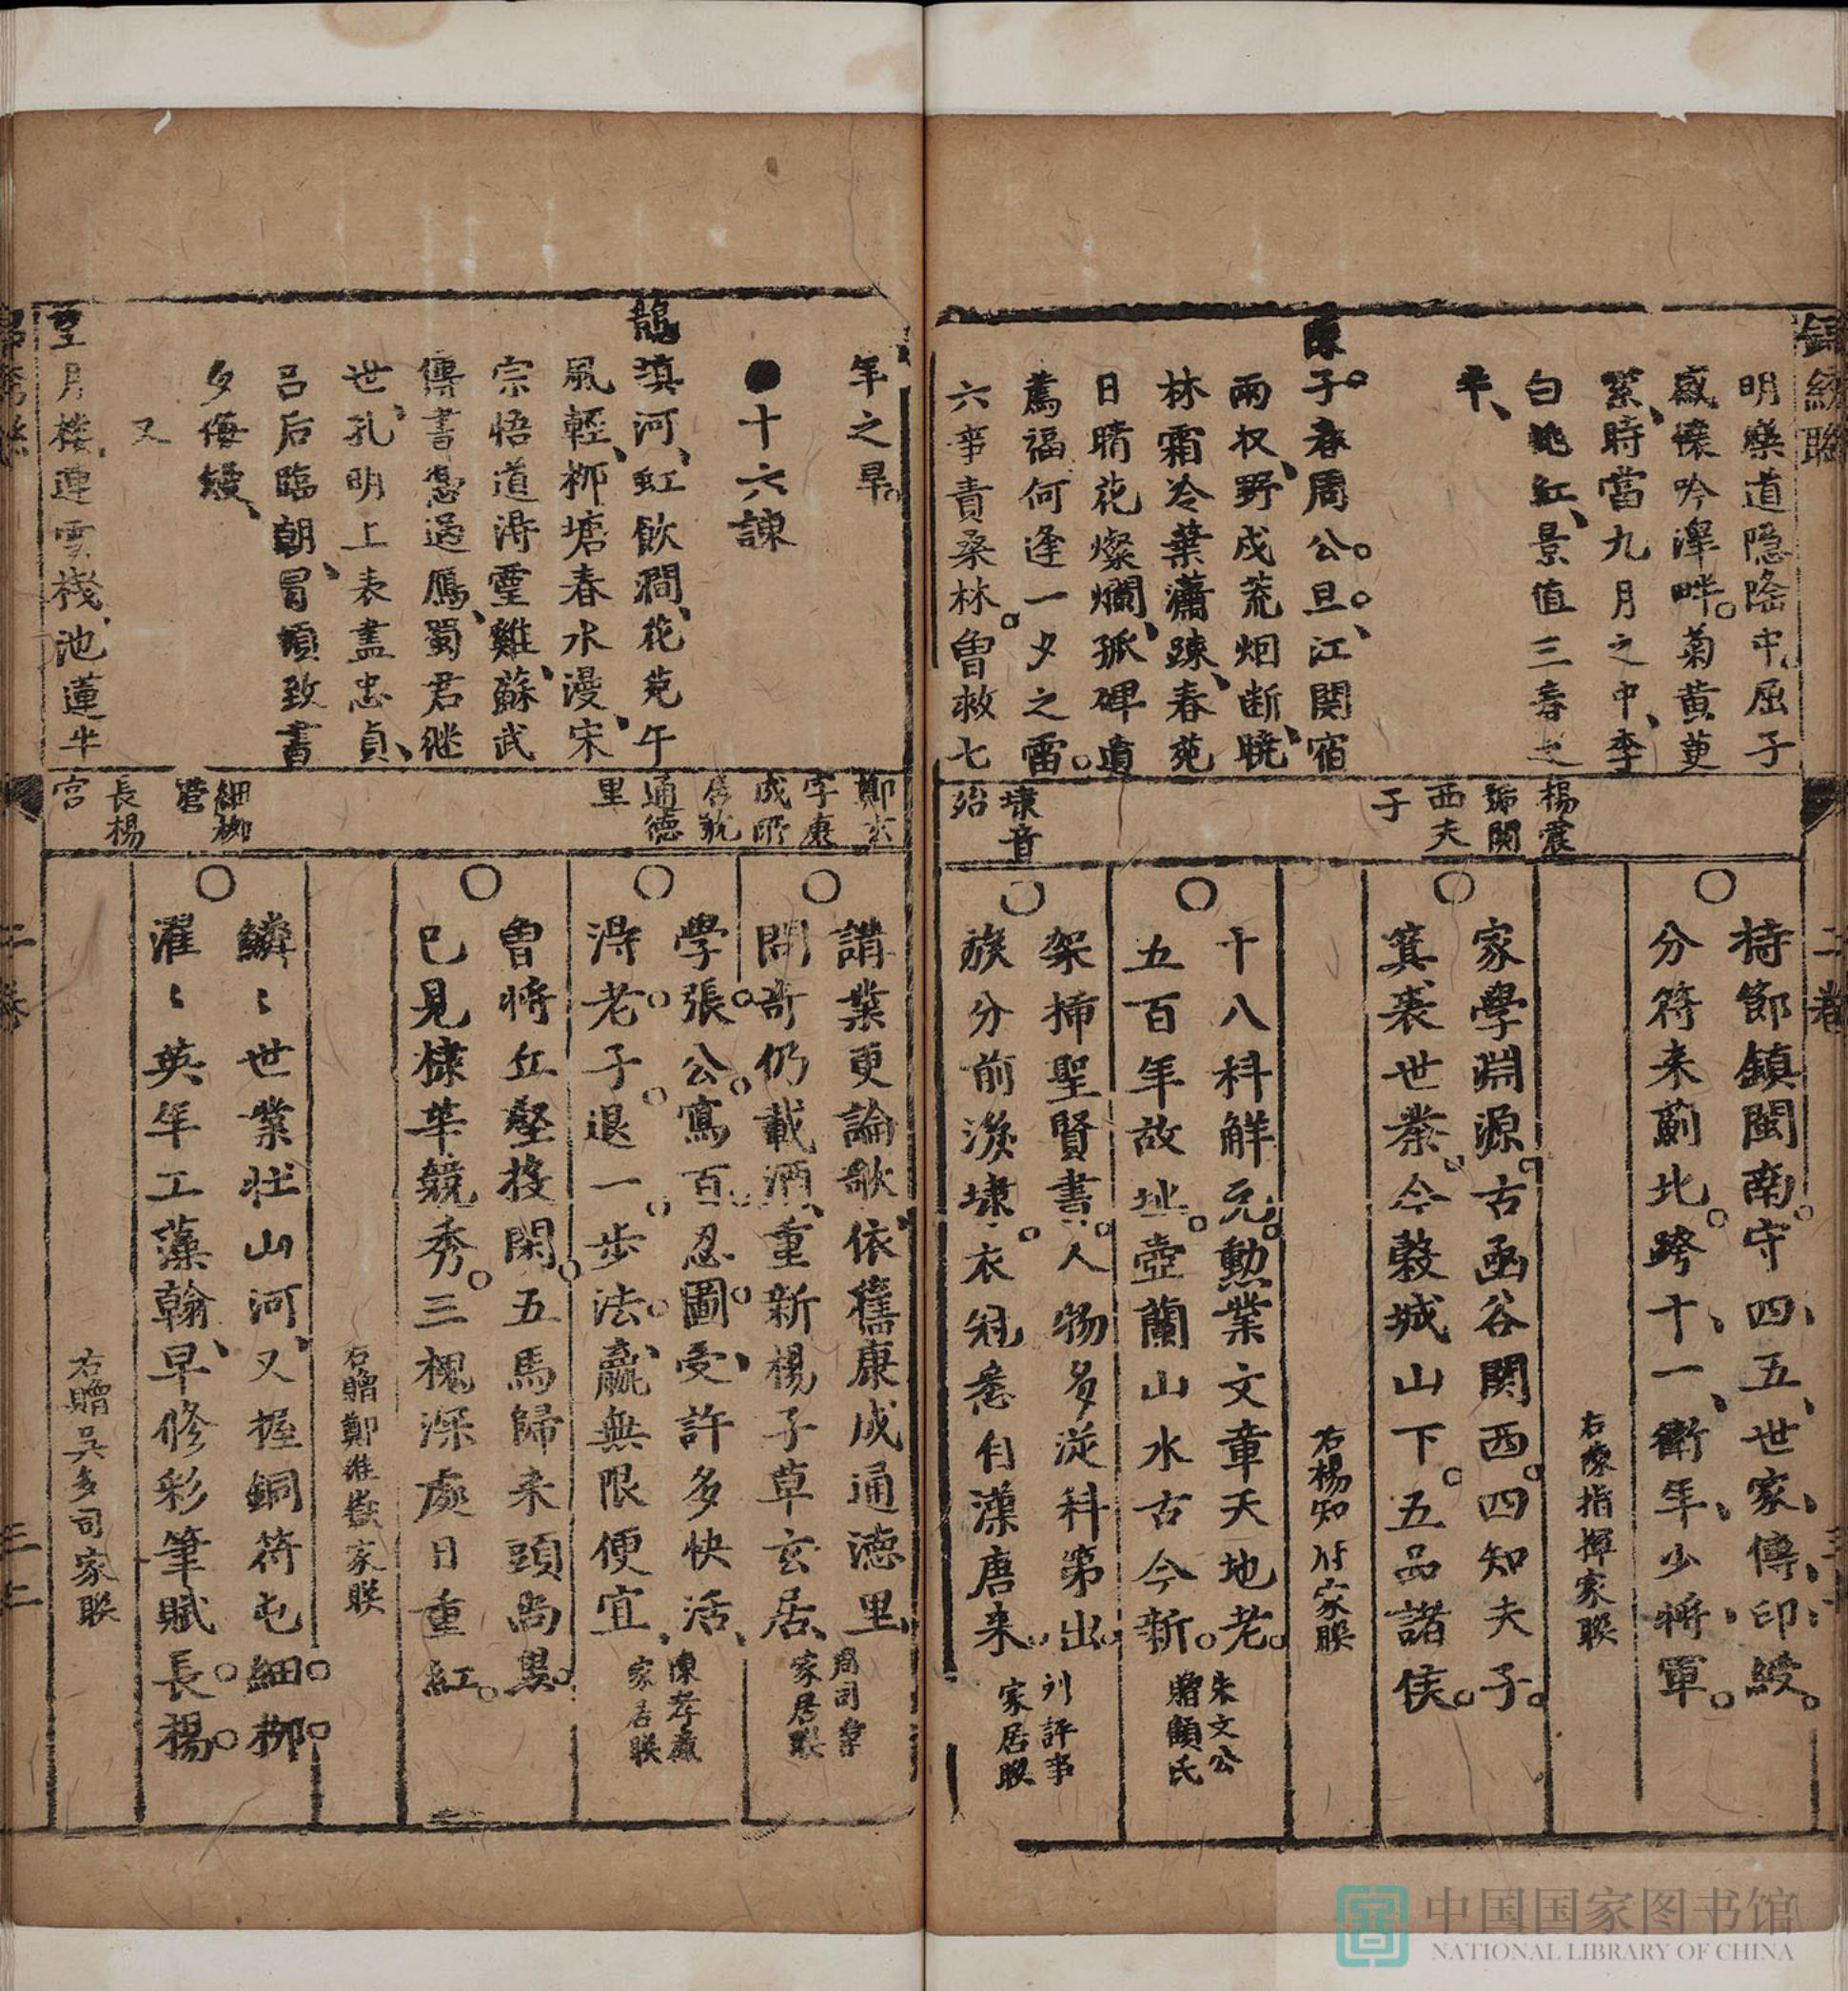 明藥道隐隂中屈子
感懐吟澤畔菊黄萸
紫時當九月之中李
白桃紅景值三春之
半
子春周公旦江関宿
雨収野戍荒烟断暁
林霜冷葉瀟踈春苑
日晴花燦爛孤碑遺
薦福何逢一夕之雷
六事責桑林曽救七
楊震
號関
西夫
子
埭音
殆
持節鎮閩南守四五世家傳印綬
分符来薊北跨十一衛年少將軍
右陳指揮家联
家學淵源古函谷関西四知夫子
箕裘世業今榖城山下五品諸侯
右楊知府家联
十八科解元勲業文章天地老
五百年故址壺蘭山水古今新
朱文公
贈顧氏
架揷聖賢書人物多従科第出
族分前後埭衣冠悉自漢唐来
刘評事
家居联
年之旱
十六諫
龍
滇河虹飲澗花苑午
風輕栁塘春水漫宋
宗悟道淂靈雞蘇武
傳書憑過鴈蜀君継
世孔明上表盡忠貞
吕后臨朝冒頓致書
多侮嫚
又
月楼連雲棧池蓮牛
鄭玄
字康
成所
居號
通德
里
細栁
營
長楊
宫
講業更論歌依舊康成通德里
問竒仍載酒重新楊子草玄居
家居联
學張公寫百忍圖受許多快活
淂老子退一步法贏無限便宜
家居联
曽將丘壑投閑五馬歸来頭尚黒
已見棣華競秀三槐深處日重紅
右贈鄭淮家联
鱗〻世業壮山河又握銅符屯細栁
濯〻英年工藻翰早修彩筆賦長楊
右贈吴多司家联
中国国家图书馆
NATIONAL LIBRARY OF CHINA